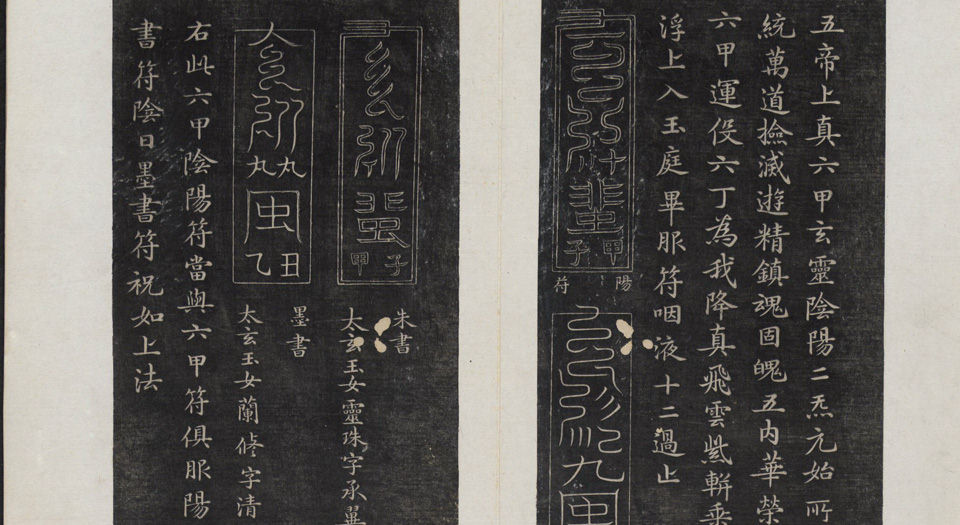 五帝上真六甲玄靈陰陽二炁元始所
統萬道撿滅遊精鎮魂固魄五内華榮
六甲運役六丁為我降真飛雲紫軿乘
浮上入玉庭畢服符咽液十二過止
甲子
陽符
九
子甲
朱書
太玄玉女靈珠字承翼
丸丸
丑乙
墨書
太玄玉女蘭脩字清
右此六甲陰陽符當與六甲符俱服陽
書符陰日墨書符祝如上法